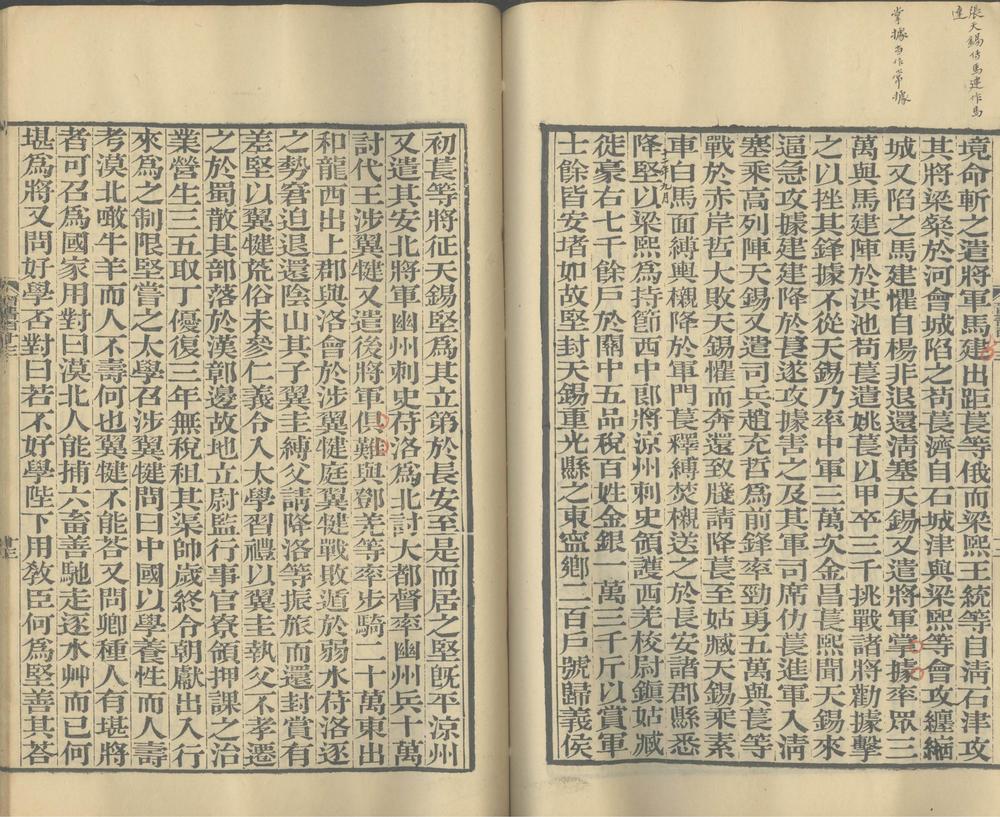 張天錫傳馬建作馬
達
掌據當作常據
境命斬之遣將軍馬建出距萇等俄而梁熙王統等自淸石津攻
其將梁粲於河會城陷之苟萇濟自石城津與梁熙等會攻纏縮
城又陷之馬建懼自楊非退還淸塞天錫又遣將軍掌據率眾三
萬與馬建陣於洪池苟萇遣姚萇以甲卒三千挑戰諸將勸據擊
之以挫其鋒據不從天錫乃率中軍三萬次金昌萇熙聞天錫來
逼急攻據建建降於萇遂攻據害之及其軍司席仂萇進軍入淸
塞乘高列陣天錫又遣司兵趙充哲爲前鋒率勁勇五萬與萇等
戰於赤岸哲大敗天錫懼而奔還致牋請降萇至姑臧天錫乘素
車白馬面縛輿櫬降於軍門萇釋縛焚櫬送之於長安諸郡縣悉
降堅以梁熙爲持節西中郞將涼州刺史領護西羌校尉鎭姑臧
徙豪右七千餘戶於關中五品稅百姓金銀一萬三千斤以賞軍
士餘皆安堵如故堅封天錫重光縣之東寧鄕二百戶號歸義侯
初萇等將征天錫堅爲其立第於長安至是而居之堅旣平涼州
又遣其安北將軍幽州刺史苻洛爲北討大都督率幽州兵十萬
討代王涉翼犍又遣後將軍俱難與鄧羌等率步騎二十萬東出
和龍西出上郡與洛會於涉翼犍庭翼犍戰敗遁於弱水苻洛逐
之勢窘迫退還陰山其子翼圭縛父請降洛等振旅而還封賞有
差堅以翼犍荒俗未參仁義令入太學習禮以翼圭執父不孝遷
之於蜀散其部落於漢鄣邊故地立尉監行事官寮領押課之治
業營生三五取丁優復三年無稅租其渠帥歲終令朝獻出入行
來爲之制限堅嘗之太學召涉翼犍問曰中國以學養性而人壽
考漠北噉牛羊而人不壽何也翼犍不能荅又問卿種人有堪將
者可召爲國家用對曰漠北人能捕六畜善馳走逐水艸而已何
堪爲將又問好學否對曰若不好學陛下用敎臣何爲堅善其荅